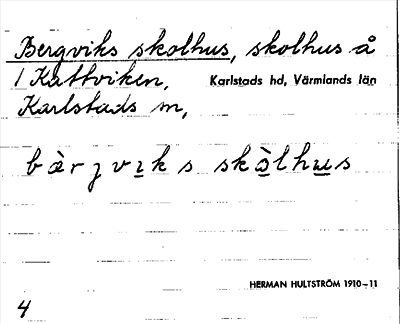 Bergviks skolhus, skolhus å
1 Kattviken, Karlstads hd, Värmlands län
Karlstads m,
bæ̀rȷvi̲ks skò̲lhu̲s
HERMAN HULTSTRÖM 1910-11
4